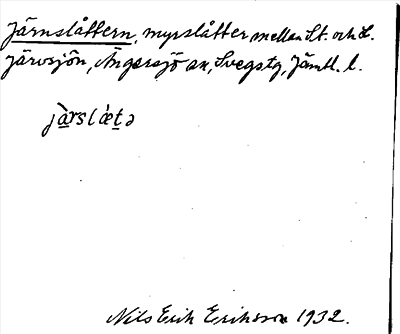 Järnslåttern, myrslåtter mellan St. och L.
Järvsjön, Ängersjö sn, Svegs tg, Jämtl. l.
jàrslǽtə
Nils Erik Eriksson 1932.